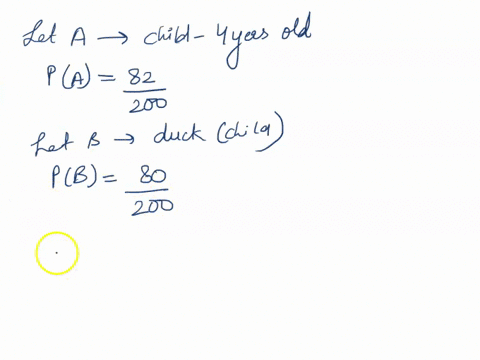 Let A → child - 4 years old
P(A) = 82/200
Let B → duck (child)
P(B) = 80/200